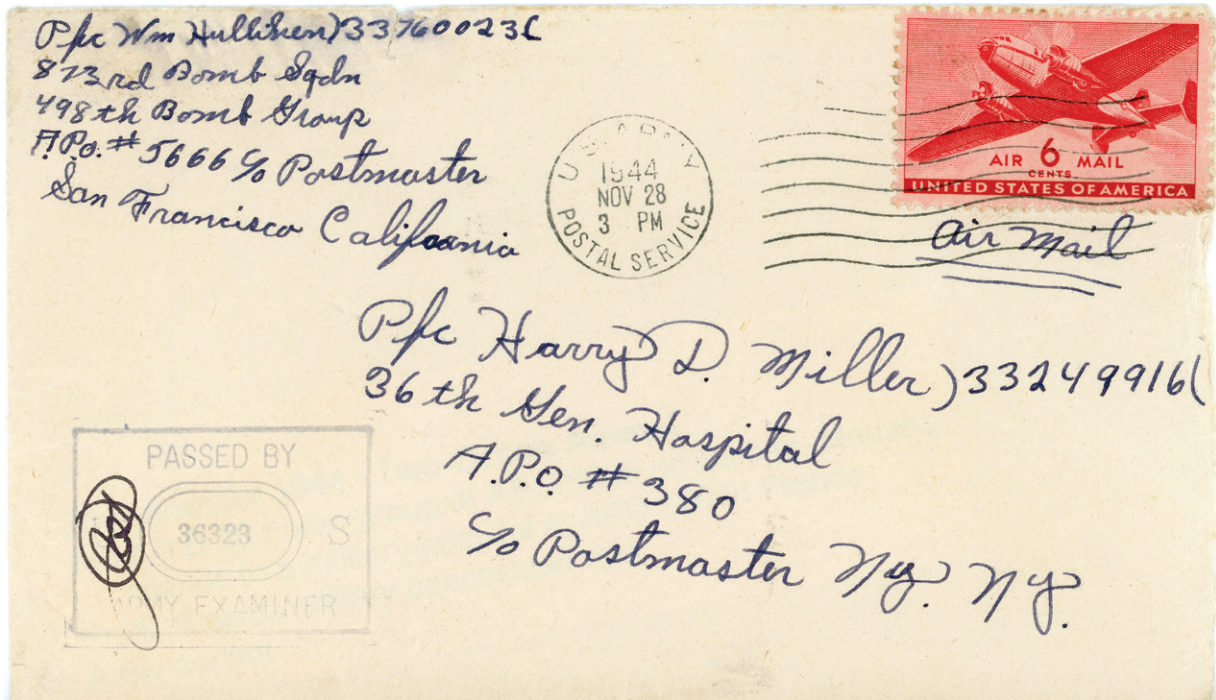 Pfc Wm Hullihen)33760023(
873rd Bomb Sqdn
498th Bomb Group
A.P.O. # 5666 c/o Postmaster
San Francisco California
U.S. ARMY
1944
NOV 28
3 PM
POSTAL SERVICE
AIR 6 MAIL
CENTS
UNITED STATES OF AMERICA
Air Mail
Pfc Harry D. Miller)33249916(
36th Gen. Hospital
A.P.O. # 380
c/o Postmaster Ny. Ny.
PASSED BY
36323 S
ARMY EXAMINER